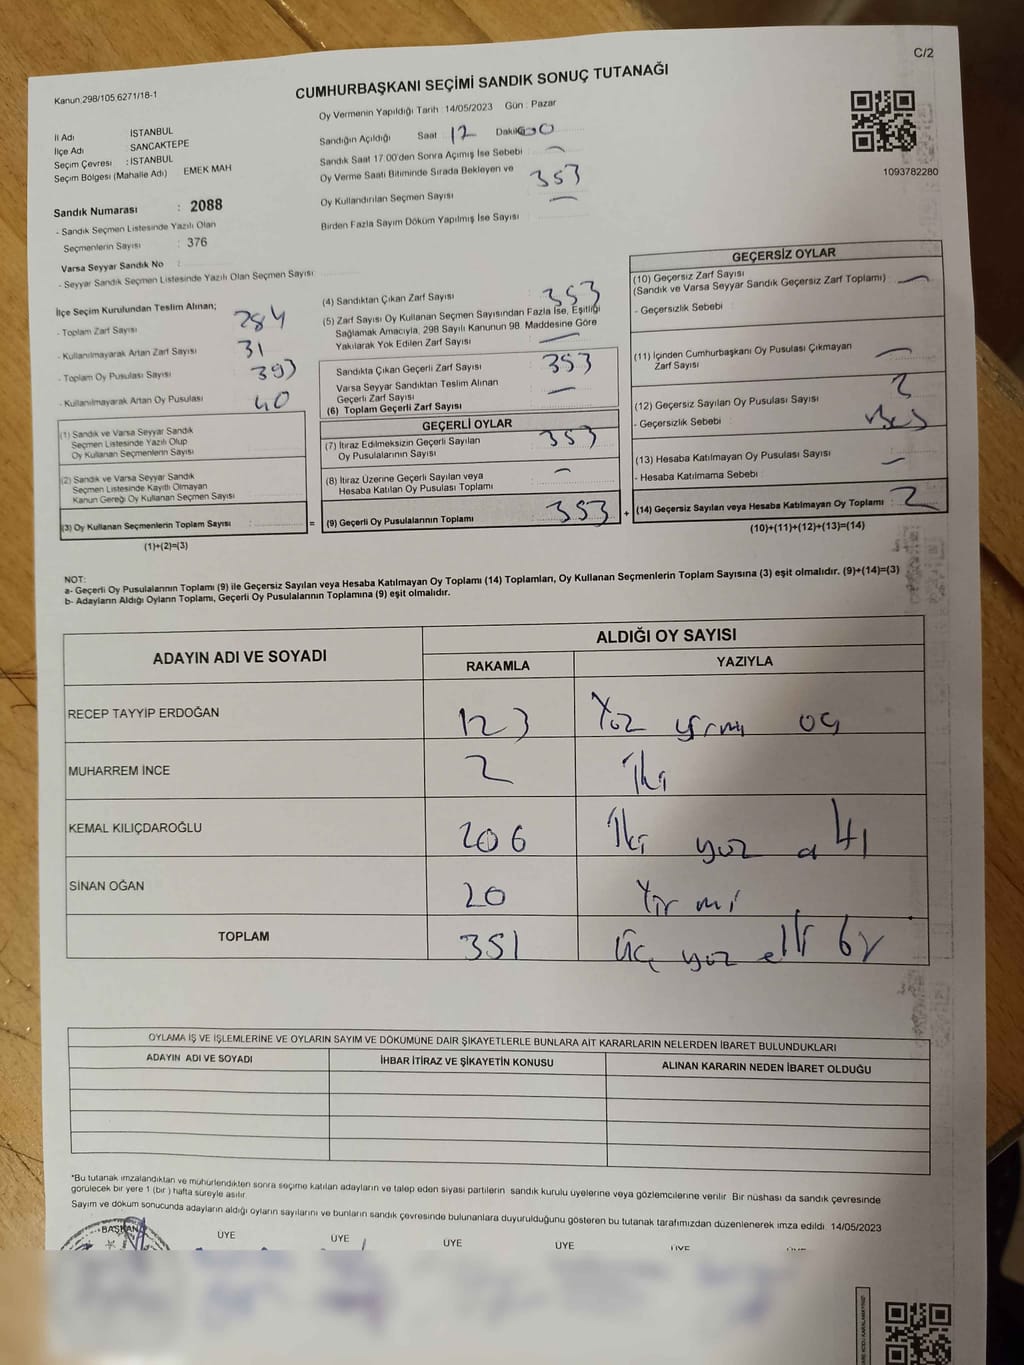 C/2
Kanun:298/105,6271/18-1
CUMHURBAŞKANI SEÇİMİ SANDIK SONUÇ TUTANAĞI
Oy Vermenin Yapıldığı Tarih : 14/05/2023 Gün : Pazar
İl Adı İSTANBUL
İlçe Adı SANCAKTEPE
Seçim Çevresi : İSTANBUL
Seçim Bölgesi (Mahalle Adı) EMEK MAH
Sandığın Açıldığı Saat 12 Dakika 00
Sandık Saat 17.00'den Sonra Açımış İse Sebebi —
Oy Verme Saati Bitiminde Sırada Bekleyen ve
Oy Kullandırılan Seçmen Sayısı 353
Birden Fazla Sayım Döküm Yapılmış İse Sayısı —
1093782280
Sandık Numarası : 2088
- Sandık Seçmen Listesinde Yazılı Olan
Seçmenlerin Sayısı : 376
Varsa Seyyar Sandık No :
- Seyyar Sandık Seçmen Listesinde Yazılı Olan Seçmen Sayısı:
İlçe Seçim Kurulundan Teslim Alınan;
- Toplam Zarf Sayısı 384
- Kullanılmayarak Artan Zarf Sayısı 31
- Toplam Oy Pusulası Sayısı 393
- Kullanılmayarak Artan Oy Pusulası 40
(1) Sandık ve Varsa Seyyar Sandık
Seçmen Listesinde Yazılı Olup
Oy Kullanan Seçmenlerin Sayısı
(2) Sandık ve Varsa Seyyar Sandık
Seçmen Listesinde Kayıtlı Olmayan
Kanun Gereği Oy Kullanan Seçmen Sayısı
(3) Oy Kullanan Seçmenlerin Toplam Sayısı =
(1)+(2)=(3)
(4) Sandıktan Çıkan Zarf Sayısı 353
(5) Zarf Sayısı Oy Kullanan Seçmen Sayısından Fazla İse, Eşitliği
Sağlamak Amacıyla, 298 Sayılı Kanunun 98. Maddesine Göre
Yakılarak Yok Edilen Zarf Sayısı —
Sandıkta Çıkan Geçerli Zarf Sayısı 353
Varsa Seyyar Sandıktan Teslim Alınan
Geçerli Zarf Sayısı —
(6) Toplam Geçerli Zarf Sayısı
GEÇERLİ OYLAR
(7) İtiraz Edilmeksizin Geçerli Sayılan
Oy Pusulalarının Sayısı 353
(8) İtiraz Üzerine Geçerli Sayılan veya
Hesaba Katılan Oy Pusulası Toplamı —
(9) Geçerli Oy Pusulalarının Toplamı 353 +
GEÇERSİZ OYLAR
(10) Geçersiz Zarf Sayısı
(Sandık ve Varsa Seyyar Sandık Geçersiz Zarf Toplamı) —
- Geçersizlik Sebebi :
(11) İçinden Cumhurbaşkanı Oy Pusulası Çıkmayan
Zarf Sayısı —
(12) Geçersiz Sayılan Oy Pusulası Sayısı 2
- Geçersizlik Sebebi
(13) Hesaba Katılmayan Oy Pusulası Sayısı —
- Hesaba Katılmama Sebebi
(14) Geçersiz Sayılan veya Hesaba Katılmayan Oy Toplamı : 2
(10)+(11)+(12)+(13)=(14)
NOT:
a- Geçerli Oy Pusulalarının Toplamı (9) ile Geçersiz Sayılan veya Hesaba Katılmayan Oy Toplamı (14) Toplamları, Oy Kullanan Seçmenlerin Toplam Sayısına (3) eşit olmalıdır. (9)+(14)=(3)
b- Adayların Aldığı Oyların Toplamı, Geçerli Oy Pusulalarının Toplamına (9) eşit olmalıdır.
ADAYIN ADI VE SOYADI ALDIĞI OY SAYISI
RAKAMLA YAZIYLA
RECEP TAYYİP ERDOĞAN 123 Yüz yirmi üç
MUHARREM İNCE 2 İki
KEMAL KILIÇDAROĞLU 206 İki yüz altı
SİNAN OĞAN 20 Yirmi
TOPLAM 351 Üç yüz elli bir
OYLAMA İŞ VE İŞLEMLERİNE VE OYLARIN SAYIM VE DÖKÜMÜNE DAİR ŞİKAYETLERLE BUNLARA AİT KARARLARIN NELERDEN İBARET BULUNDUKLARI
ADAYIN ADI VE SOYADI İHBAR İTİRAZ VE ŞİKAYETİN KONUSU ALINAN KARARIN NEDEN İBARET OLDUĞU
*Bu tutanak imzalandıktan ve mühürlendikten sonra seçime katılan adayların ve talep eden siyasi partilerin sandık kurulu üyelerine veya gözlemcilerine verilir. Bir nüshası da sandık çevresinde
görülecek bir yere 1 (bir ) hafta süreyle asılır.
Sayım ve döküm sonucunda adayların aldığı oyların sayılarını ve bunların sandık çevresinde bulunanlara duyurulduğunu gösteren bu tutanak tarafımızdan düzenlenerek imza edildi. 14/05/2023
BAŞKAN ÜYE ÜYE ÜYE ÜYE ÜYE